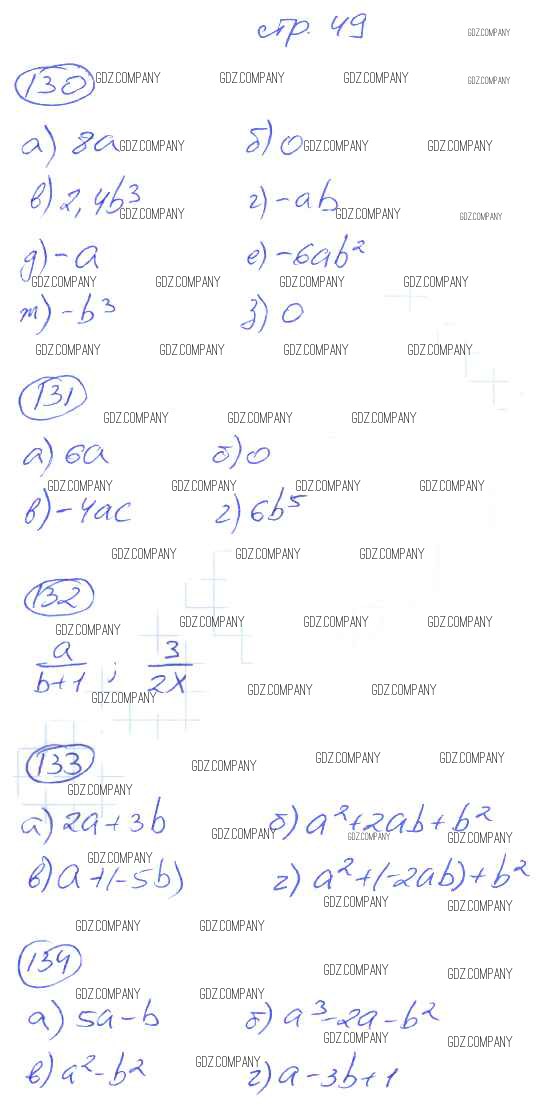 стр. 49
GDZ.COMPANY
130 GDZ.COMPANY GDZ.COMPANY GDZ.COMPANY GDZ.COMPANY
а) 8a GDZ.COMPANY б) 0 GDZ.COMPANY GDZ.COMPANY
в) 2,4b³ г) -ab
GDZ.COMPANY GDZ.COMPANY GDZ.COMPANY
д) -a е) -6ab²
GDZ.COMPANY GDZ.COMPANY GDZ.COMPANY GDZ.COMPANY
ж) -b³ з) 0
GDZ.COMPANY GDZ.COMPANY GDZ.COMPANY GDZ.COMPANY
131
GDZ.COMPANY GDZ.COMPANY GDZ.COMPANY
а) 6a б) 0
GDZ.COMPANY GDZ.COMPANY GDZ.COMPANY GDZ.COMPANY
в) -4ac г) 6b⁵
GDZ.COMPANY GDZ.COMPANY GDZ.COMPANY
132
GDZ.COMPANY GDZ.COMPANY GDZ.COMPANY GDZ.COMPANY
a/(b+1) ; 3/(2x)
GDZ.COMPANY GDZ.COMPANY GDZ.COMPANY
133 GDZ.COMPANY GDZ.COMPANY GDZ.COMPANY
GDZ.COMPANY
а) 2a+3b б) a²+2ab+b²
GDZ.COMPANY GDZ.COMPANY GDZ.COMPANY
GDZ.COMPANY
в) a+(-5b) г) a²+(-2ab)+b²
GDZ.COMPANY GDZ.COMPANY
GDZ.COMPANY GDZ.COMPANY
134
GDZ.COMPANY GDZ.COMPANY
GDZ.COMPANY GDZ.COMPANY
а) 5a-b б) a³-2a-b²
GDZ.COMPANY GDZ.COMPANY
GDZ.COMPANY
в) a²-b² г) a-3b+1